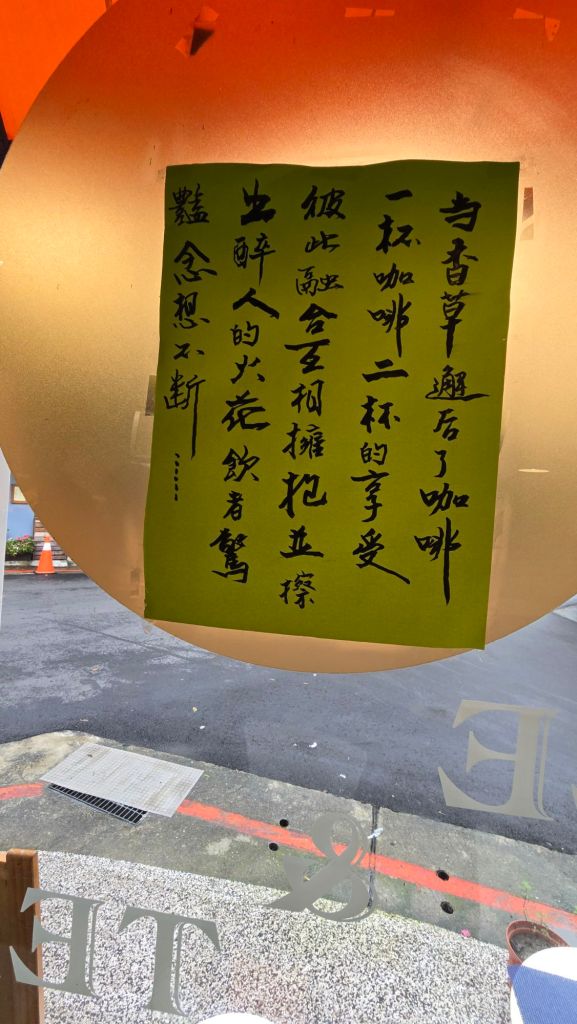 与香草邂后了咖啡
一杯咖啡二杯的享受
彼此融合互相擁抱並擦
出醉人的火花飲者驚
豔念想不斷……
E
&
TE